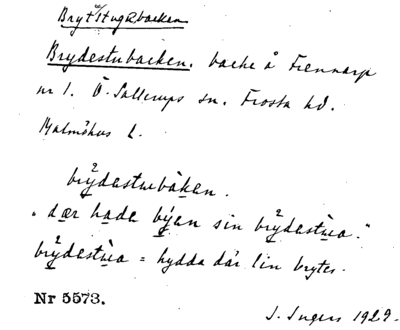 Brytstugebacken
Brydestubacken. backe å Fiennarp
nr 1. Ö. Sallerups sn. Frosta hd.
Malmöhus l.
brydestubåken.
"dær hade býen sin brydestua."
brydestua = hydda där lin brytes.
Nr 5573.
I. Ingers 1929.